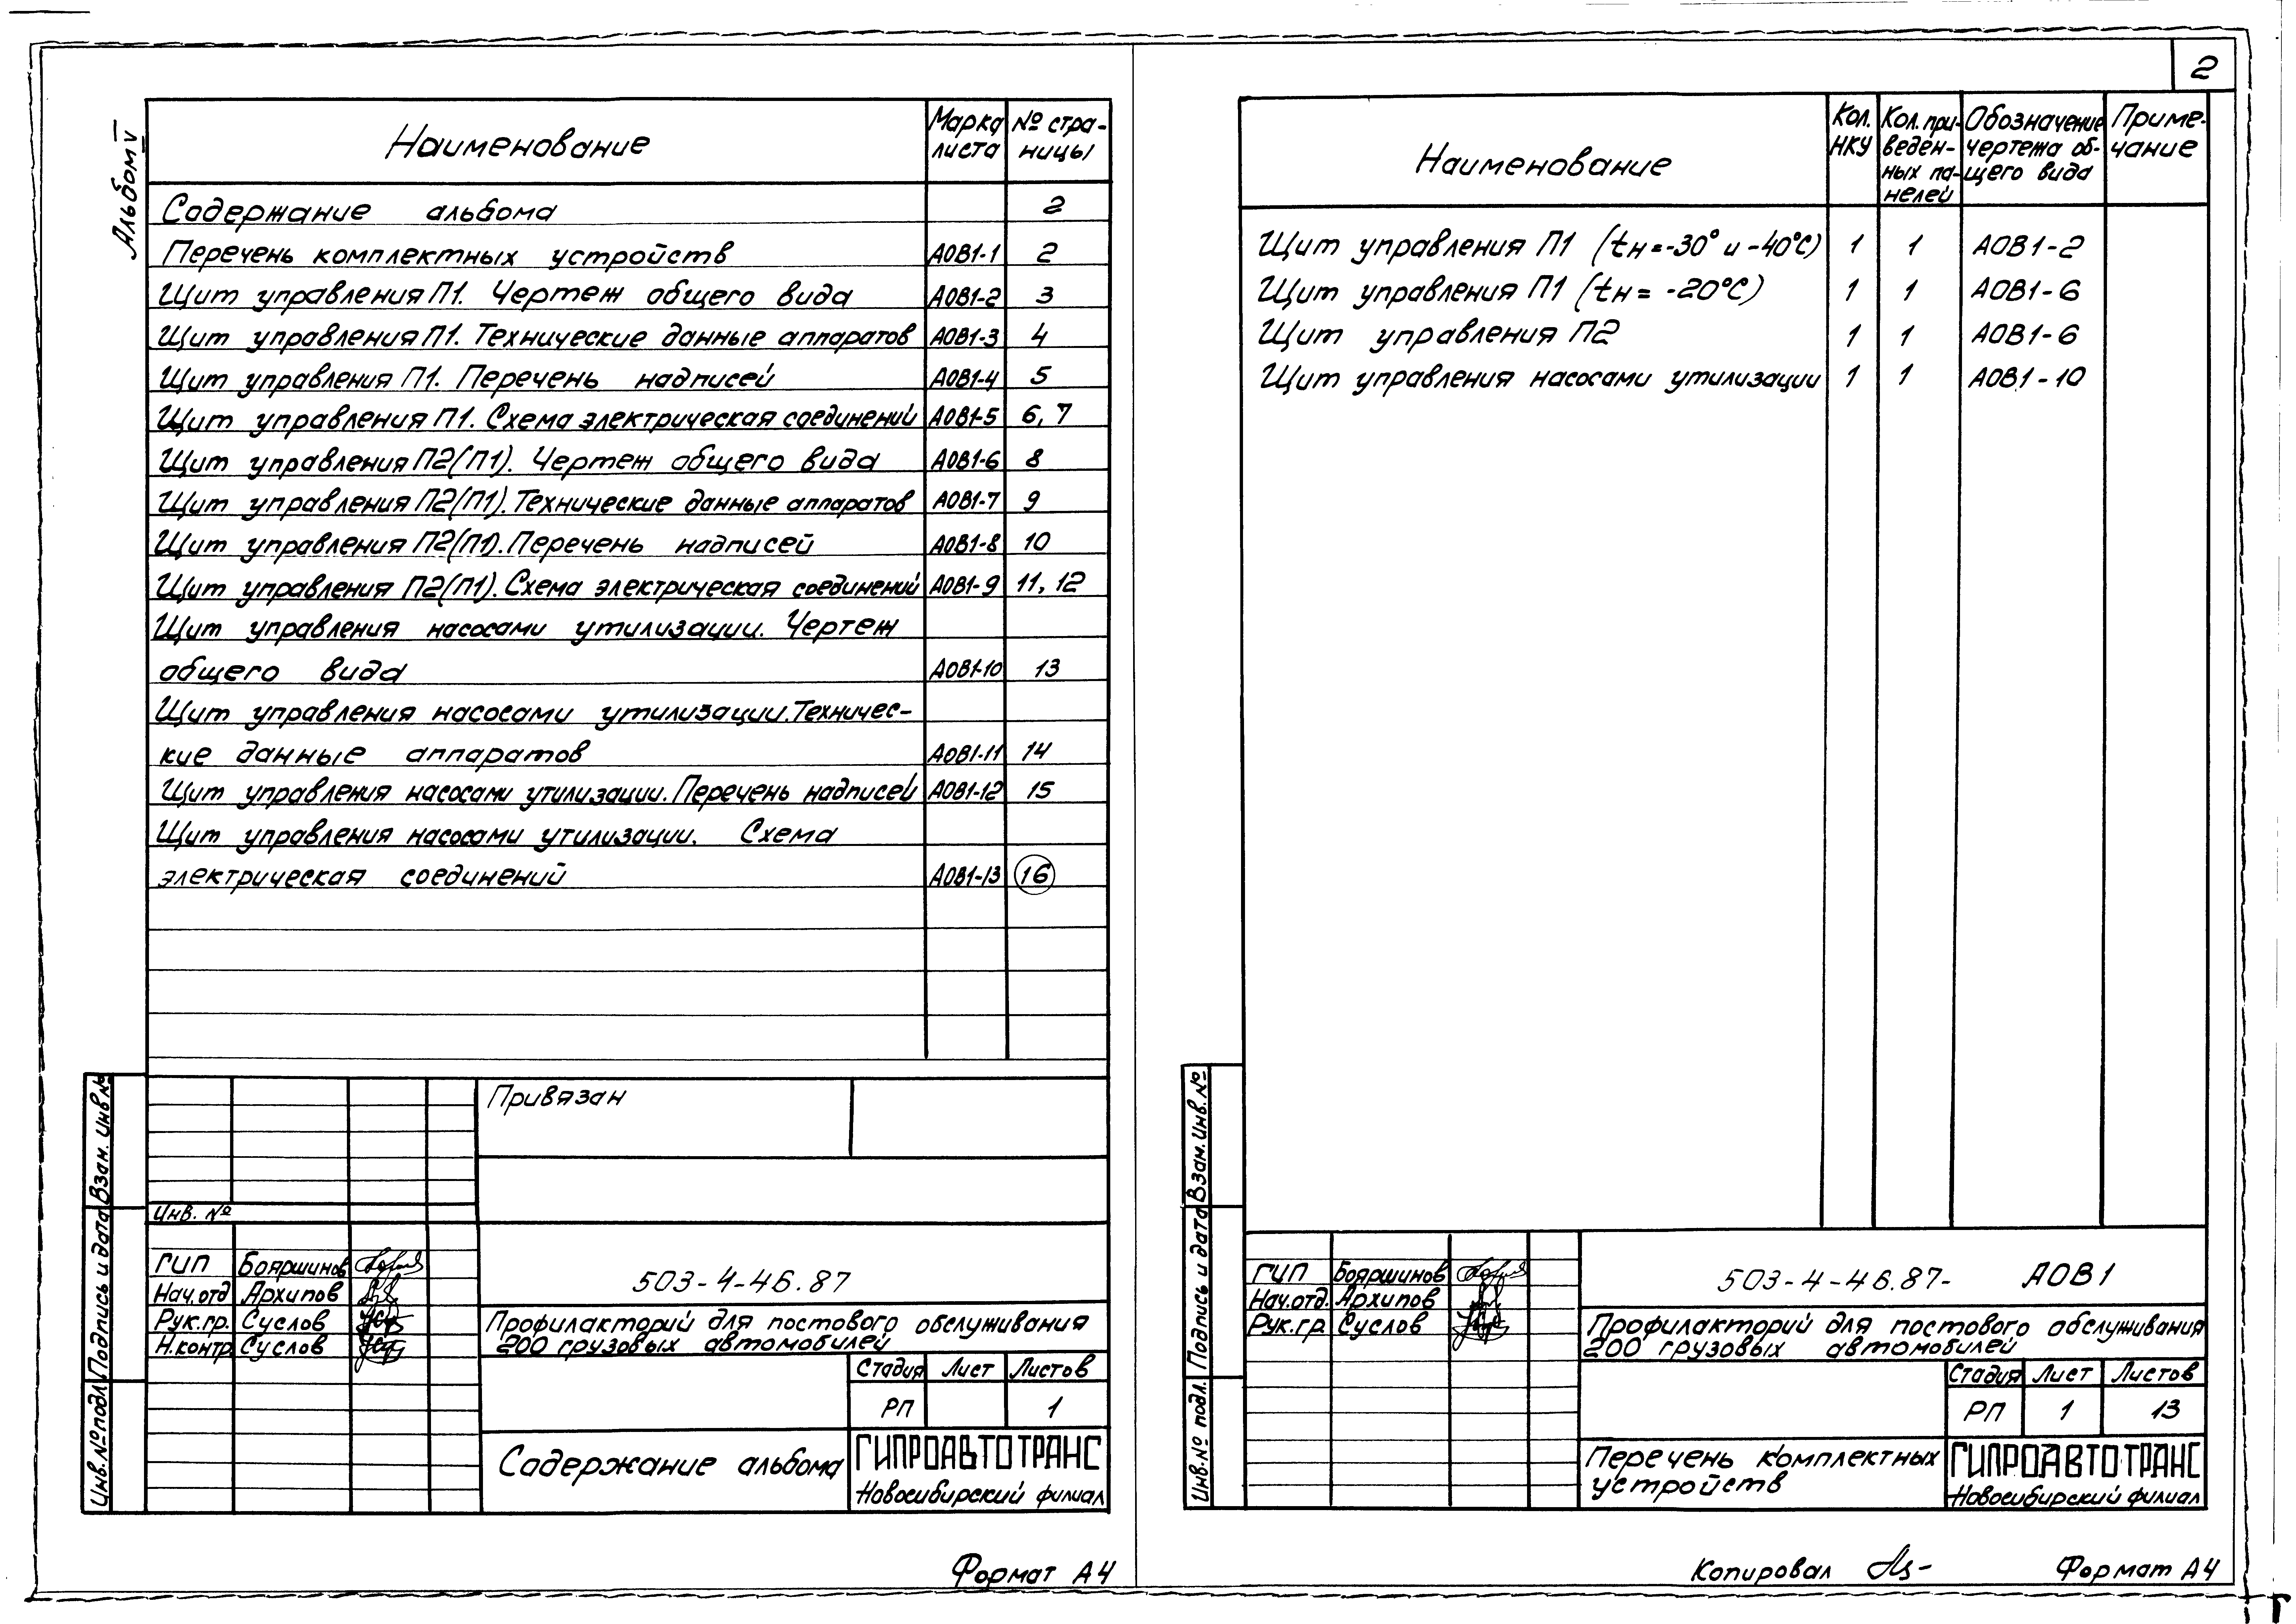 2
Альбом V
Наименование Марка листа № страницы
Содержание альбома 2
Перечень комплектных устройств АОВ1-1 2
Щит управления П1. Чертеж общего вида АОВ1-2 3
Щит управления П1. Технические данные аппаратов АОВ1-3 4
Щит управления П1. Перечень надписей АОВ1-4 5
Щит управления П1. Схема электрическая соединений АОВ1-5 6, 7
Щит управления П2(П1). Чертеж общего вида АОВ1-6 8
Щит управления П2(П1). Технические данные аппаратов АОВ1-7 9
Щит управления П2(П1). Перечень надписей АОВ1-8 10
Щит управления П2(П1). Схема электрическая соединений АОВ1-9 11, 12
Щит управления насосами утилизации. Чертеж
общего вида АОВ1-10 13
Щит управления насосами утилизации. Техничес-
кие данные аппаратов АОВ1-11 14
Щит управления насосами утилизации. Перечень надписей АОВ1-12 15
Щит управления насосами утилизации. Схема
электрическая соединений АОВ1-13 16
Привязан
Инв. №
ГИП Бояршинов
Нач.отд Архипов
Рук.гр. Суслов
Н.контр Суслов
503-4-46.87
Профилакторий для постового обслуживания
200 грузовых автомобилей
Стадия Лист Листов
РП 1
Содержание альбома
ГИПРОАВТОТРАНС
Новосибирский филиал
Взам. инв №
Подпись и дата
Инв. № подл.
Формат А4
Наименование Кол. НКУ Кол. при-веден-ных па-нелей Обозначение чертежа об-щего вида Приме-чание
Щит управления П1 (tн=-30° и -40°С) 1 1 АОВ1-2
Щит управления П1 (tн= -20°С) 1 1 АОВ1-6
Щит управления П2 1 1 АОВ1-6
Щит управления насосами утилизации 1 1 АОВ1-10
ГИП Бояршинов
Нач.отд. Архипов
Рук.гр. Суслов
503-4-46.87- АОВ1
Профилакторий для постового обслуживания
200 грузовых автомобилей
Стадия Лист Листов
РП 1 13
Перечень комплектных
устройств
ГИПРОАВТОТРАНС
Новосибирский филиал
Взам. инв. №
Подпись и дата
Инв. № подл.
Копировал
Формат А4